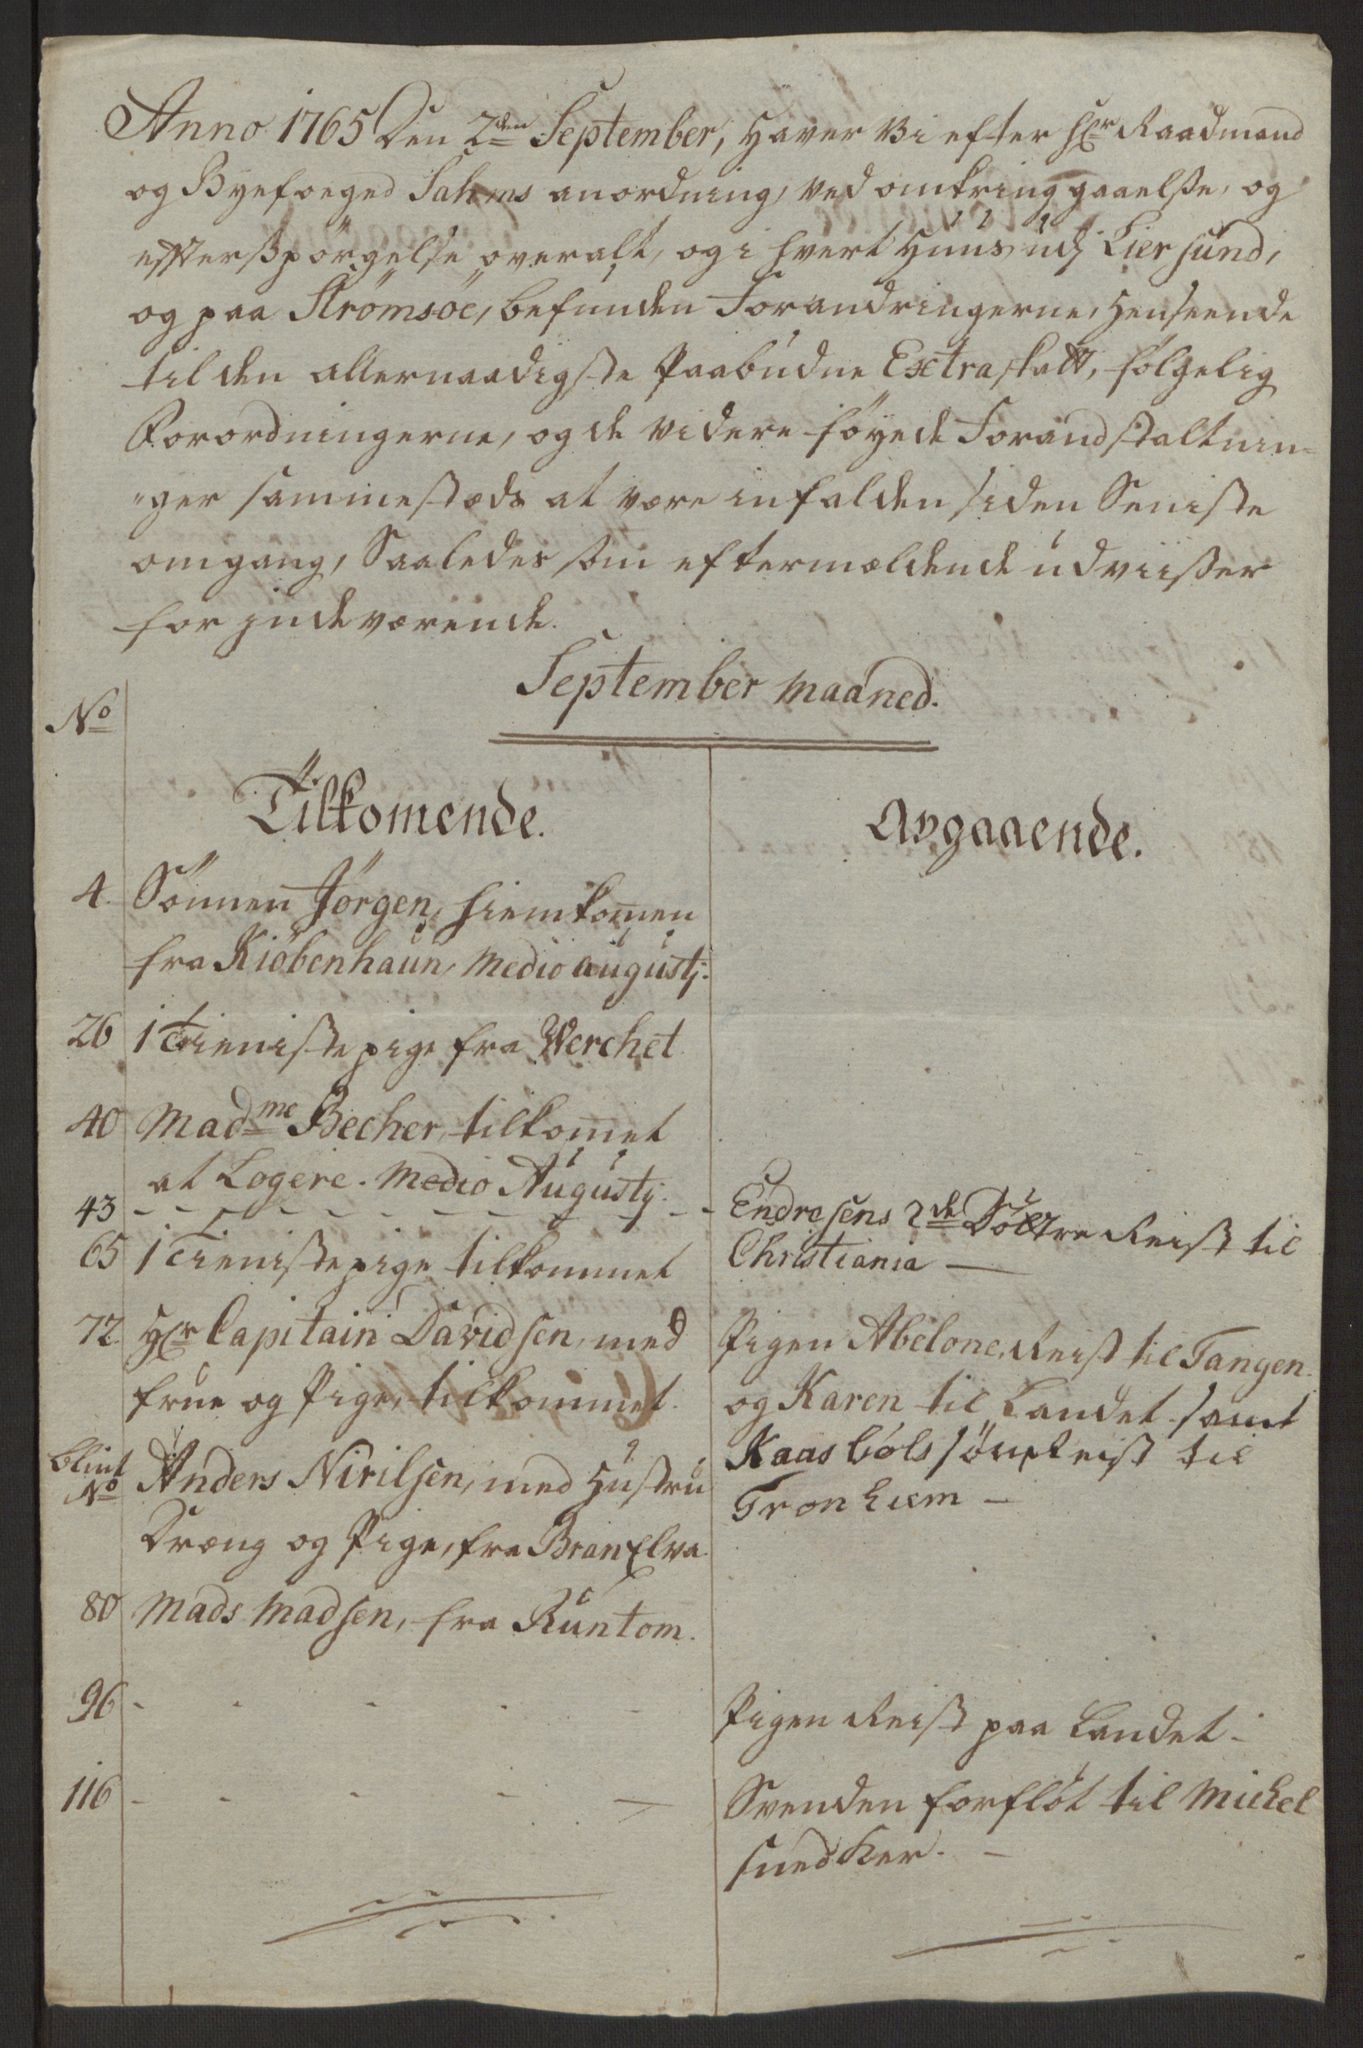 Anno 1765 Den 2den September, Haver Vi efter Hr Raadmand
og Byefoeged Sahms anordning, ved omkring gaaelsse, og
effterspørgelse overalt, og i hvert Huus udj Liersund,
og paa Strømsøe, befunden Forandringerne, henseende
til den allernaadigste Paabudne Extraskatt, følgelig
Forordningerne, og de videre føyede Forandstaltnin-
"ger sammestæds at være infalden siden Seniste
omgang, Saaledes som eftermældende udviisser
for indeværende.
September Maaned.
No
Tilkomende. Avgaaende.
4. Sönnen Jörgen, hiemkomen
fra Kiöbenhaun, Medio augustj.
26 1 Tieniste pige fra Werchet
40 Madme Becher, tilkomet
at Logere. Medio Augustj.
43 - - - - - - - - - Endresens 2de Döttre Reist til
Christiania —
65 1 Tieniste pige tilkommet
72. Hr Capitain Davidsen, med
frue og Pige, tilkommet.
Pigen Abelone, Reist til Tangen.
og Karen til Landet. samt
Kaasböls sön Reist til
Tronhiem —
Blint
No Anders Nirilsen, med Hustru
Dræng og Pige, fra Branxlva.
80 Mads Madsen, fra Runtom.
96 - - - - - Pigen Reist paa Landet -
116 - - - - — Svenden forfløt til Mickel
Snedker. -